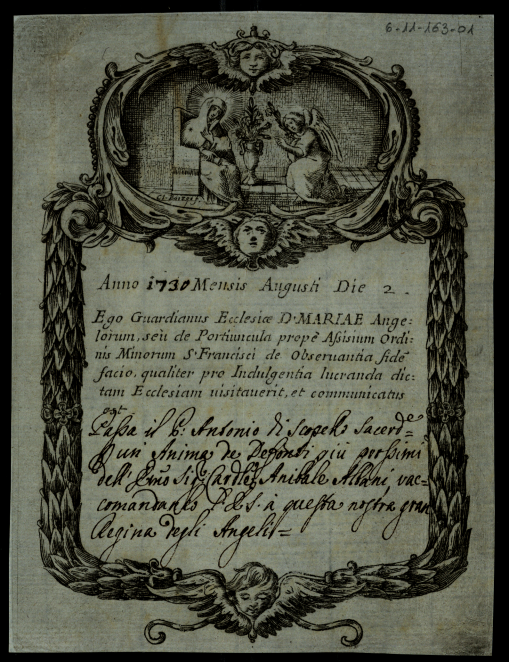 6-11-163-01
Anno 1730 Mensis Augusti Die 2.
Ego Guardianus Ecclesiæ D. MARIAE Ange-
lorum, seù de Portiuncula propè Asisium Ordi-
nis Minorum S. Francisci de Obseruantia fidē
facio, qualiter pro Indulgentia lucranda dic-
tam Ecclesiam uisitauerit, et communicatus
est
Passa il P: Antonio di Sacerd-
un Anima de Defonti più prossimi
dell' Sig: Cardle Anibale Albani, rac-
comandando à questa nostra gran
Regina degli Angeli